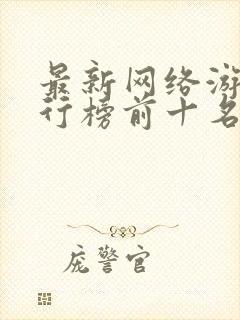 最新网络游
行榜前十名
庞警官